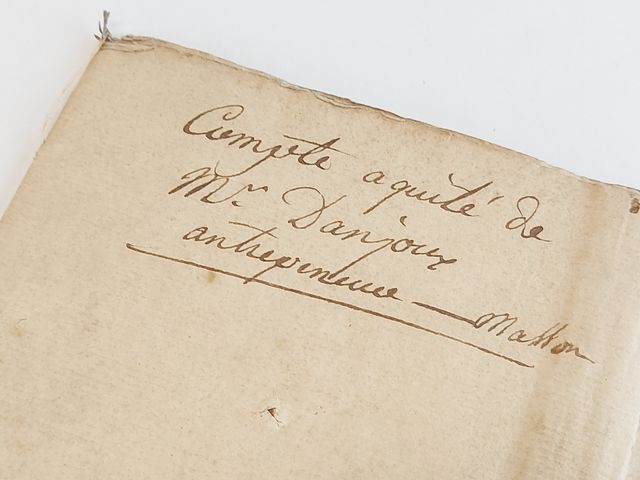 Compte aquité de
Mr. Danjoux
antrepreneur — Masson